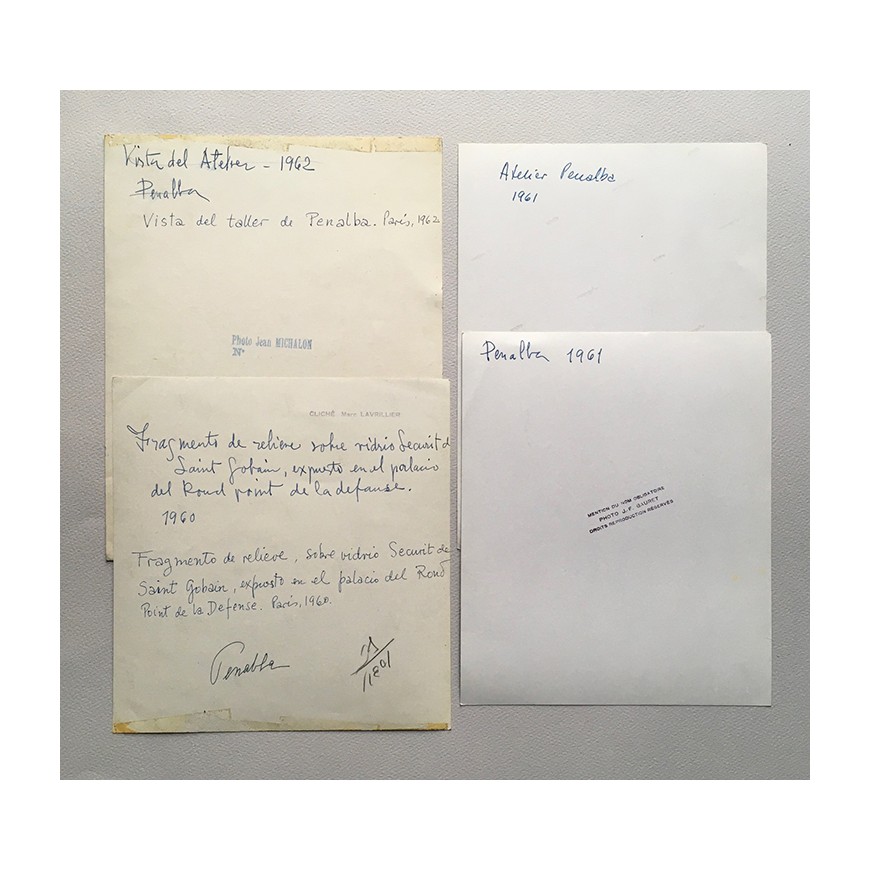 Vista del Atelier - 1962
Penalba
Vista del taller de Penalba. París, 1962
Photo Jean MICHALON
N°
CLICHÉ Marc LAVRILLIER
Fragmento de relieve sobre vidrio Securit de
Saint Gobain, expuesto en el palacio
del Round point de la defanse.
1960
Fragmento de relieve, sobre vidrio Securit de
Saint Gobain, expuesto en el palacio del Rond
Point de la Defense. París, 1960.
Penalba
Atelier Penalba
1961
Penalba 1961
MENTION DU NOM OBLIGATOIRE
PHOTO J. F. GAURET
DROITS REPRODUCTION RÉSERVÉS